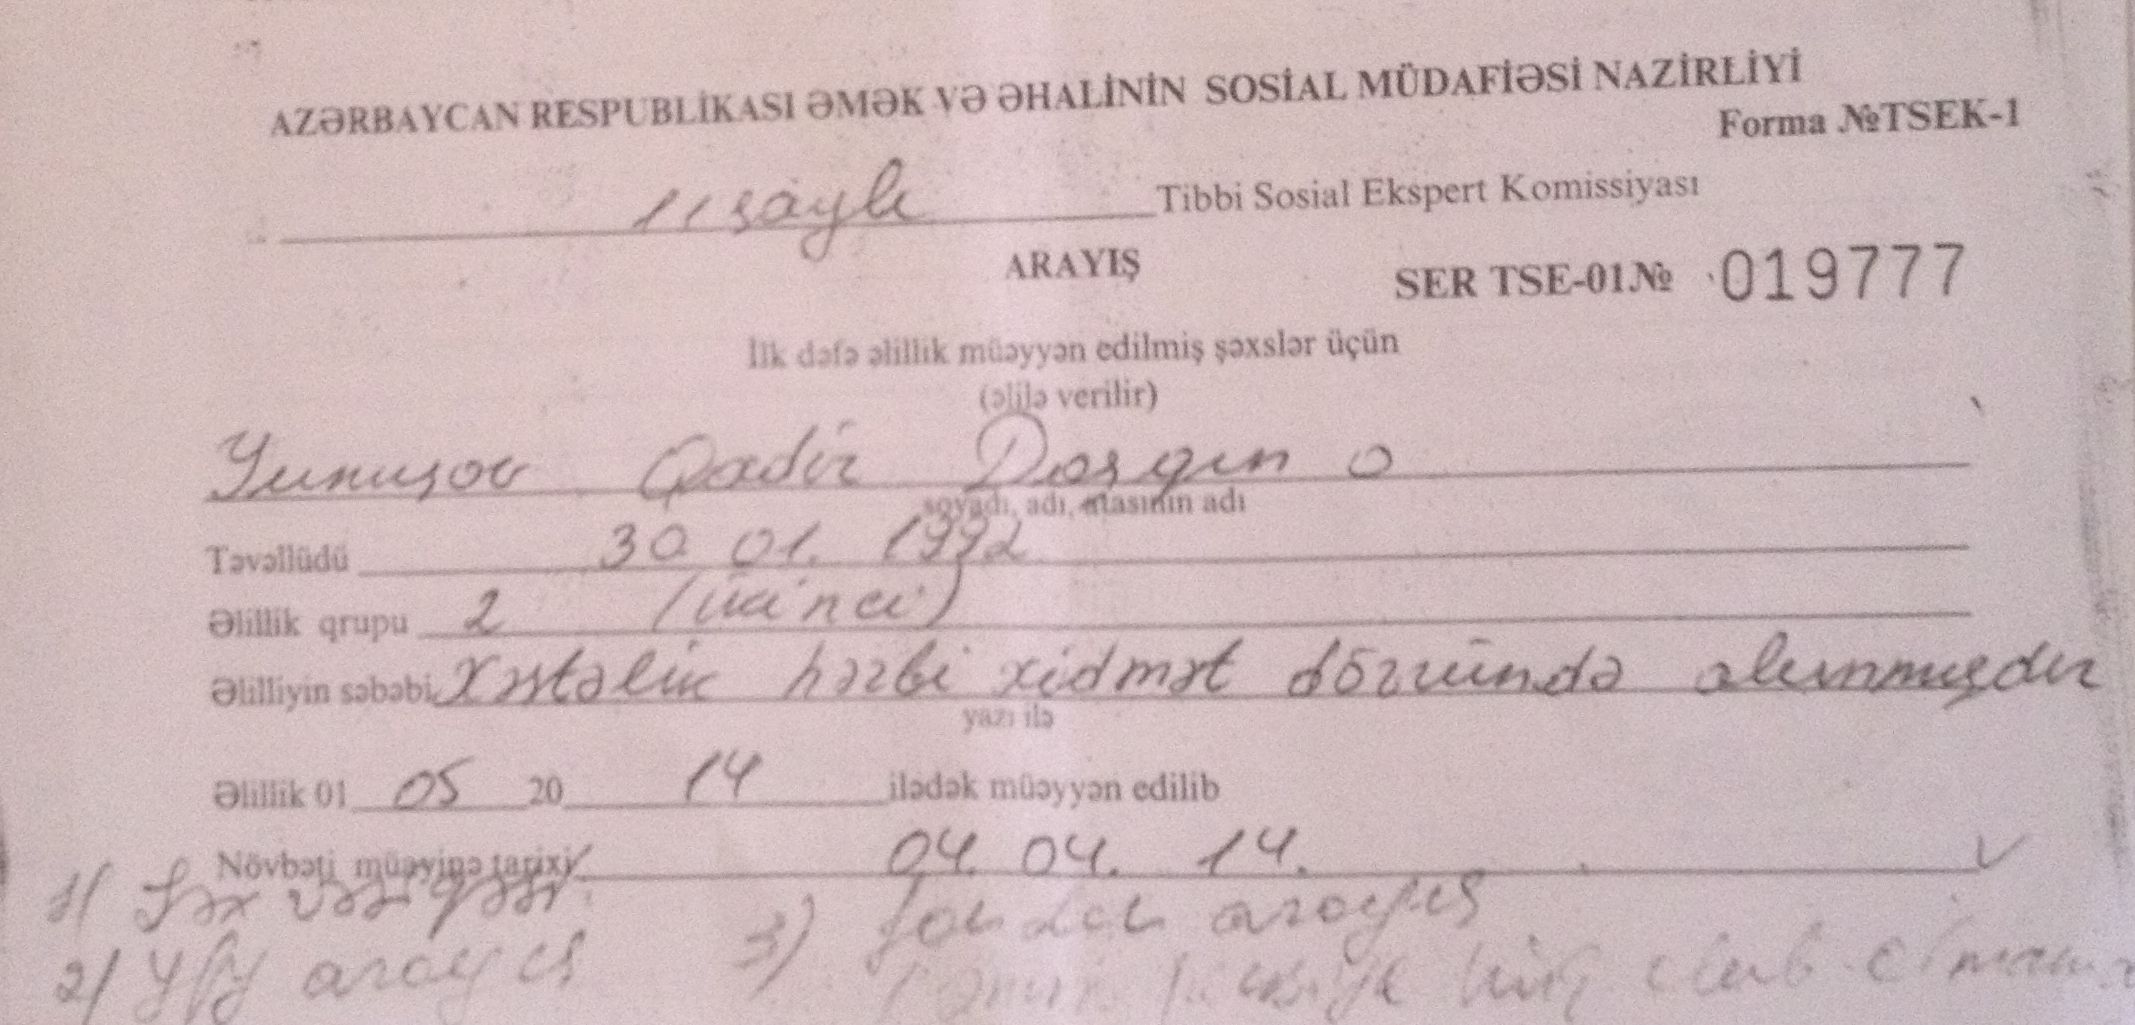 AZƏRBAYCAN RESPUBLİKASI ƏMƏK VƏ ƏHALİNİN SOSİAL MÜDAFİƏSİ NAZİRLİYİ
Forma №TSEK-1
11 saylı Tibbi Sosial Ekspert Komissiyası
ARAYIŞ
SER TSE-01.№ 019777
İlk dəfə əlillik müəyyən edilmiş şəxslər üçün
(əlilə verilir)
Yunusov Qadir Dosqun o
soyadı, adı, atasının adı
Təvəllüdü 30 01. 1992
Əlillik qrupu 2 (ikinci)
Əlilliyin səbəbi Xəstəlik hərbi xidmət dövründə alınmışdır
yazı ilə
Əlillik 01 05 20 14 ilədək müəyyən edilib
Növbəti müayinə tarixi 04. 04. 14.
1) Şəx vəsiqəsi 3) arayış
2) arayış